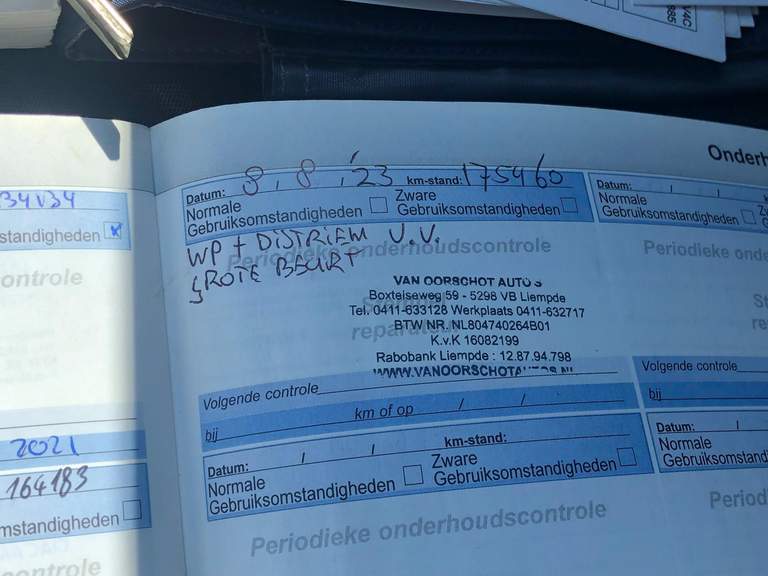 V4C
985
34134
standigheden
ontrole
2021
164183
mstandigheden
controle
Onderh
Datum: 8 / 8 / '23 km-stand: 175460
Normale Gebruiksomstandigheden
Zware Gebruiksomstandigheden
WP + DISTRIEM V.V.
GROTE BEURT
Periodieke onderhoudscontrole
VAN OORSCHOT AUTO'S
Boxtelseweg 59 - 5298 VB Liempde
Tel. 0411-633128 Werkplaats 0411-632717
BTW NR. NL804740264B01
K.v.K 16082199
Rabobank Liempde : 12.87.94.798
WWW.VANOORSCHOTAUTOS.NL
Volgende controle
bij km of op / /
Datum: / / km-stand:
Normale Gebruiksomstandigheden
Zware Gebruiksomstandigheden
Periodieke onderhoudscontrole
Datum: / /
Normale
Gebruiksomstandigheden
Periodieke onderh
St
re
Volgende controle
bij
Datum: /
Normale
Gebruiksomstandighed
Period